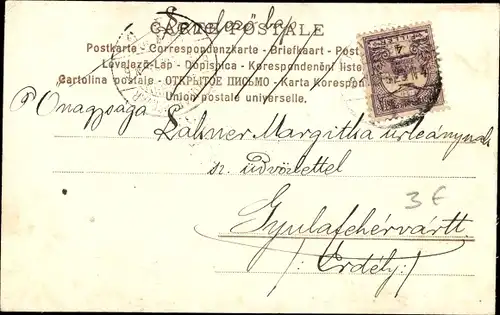 CARTE POSTALE
Postkarte - Correspondenzkarte - Briefkaart - Post
Levelező-Lap - Dopisnica - Korespondenční liste
Cartolina postale - ОТКРЫТОЕ ПИСЬМО - Karta Korespon
Union postale universelle.
Önagysága
Lahner Margitka úrleánynak
sz. üdvözlettel
3 €
Gyulafehérvártt
/: Erdély :/